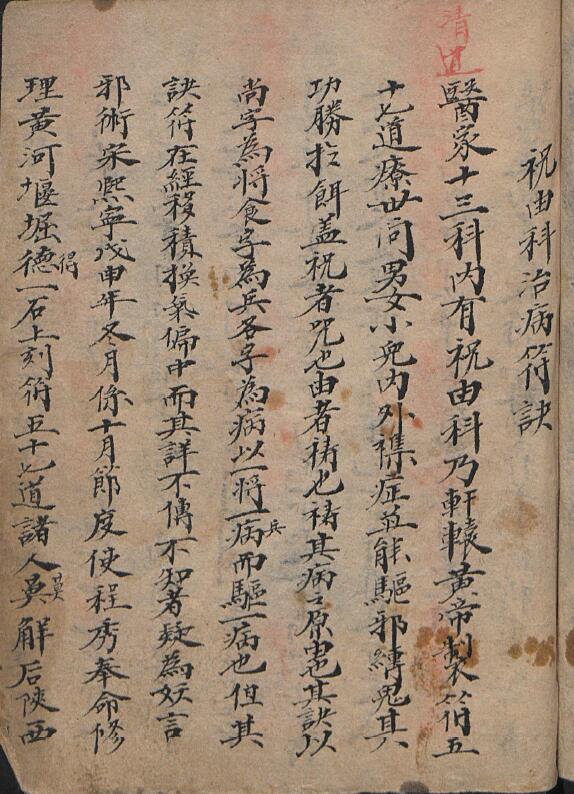 祝由科治病符訣
清道
醫家十三科內有祝由科乃軒轅黃帝製符五
十七道療世間男女小兒內外襍症並能驅邪縛鬼其
功勝於餌蓋祝者咒也由者禱也禱其病之原由也其訣以
尚字為將食字為兵各字為病以一將一兵病而驅一病也但其
訣符在經移積換氣偏中而其詳不傳不知者疑為妖言
邪術宋熙寧戊申年冬月係十月節度使程秀奉命修
理黃河堰堀德得一石上刻符五十七道諸人莫解后陝西